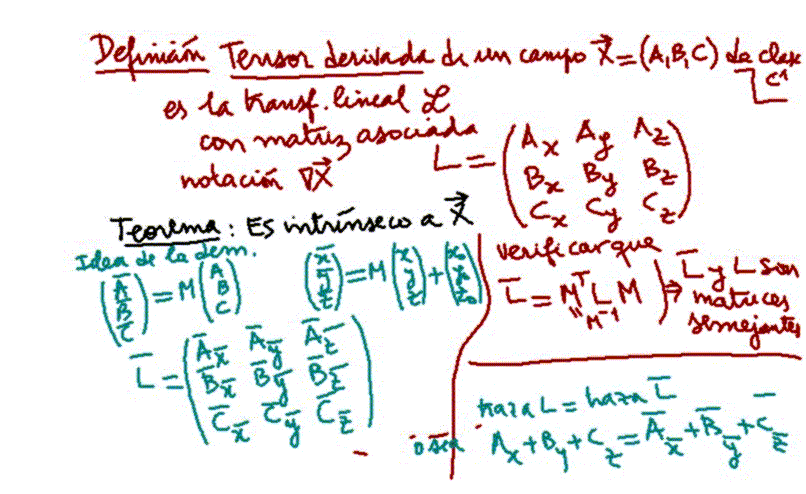 Definición Tensor derivada de un campo X⃗ = (A, B, C) de clase C¹
es la transf. lineal ℒ
con matriz asociada
notación ∇X⃗
L = ( Ax Ay Az
Bx By Bz
Cx Cy Cz )
Teorema: Es intrínseco a X⃗
Idea de la dem.
( A̅ B̅ C̅ ) = M ( A B C )
( x̅ y̅ z̅ ) = M ( x y z ) + ( x₀ y₀ z₀ )
L̅ = ( A̅x̅ A̅y̅ A̅z̅
B̅x̅ B̅y̅ B̅z̅
C̅x̅ C̅y̅ C̅z̅ )
verificar que
L̅ = Mᵀ L M
" M⁻¹
⇒ L̅ y L son
matrices
semejantes
traza L = traza L̅
o sea Ax + By + Cz = A̅x̅ + B̅y̅ + C̅z̅